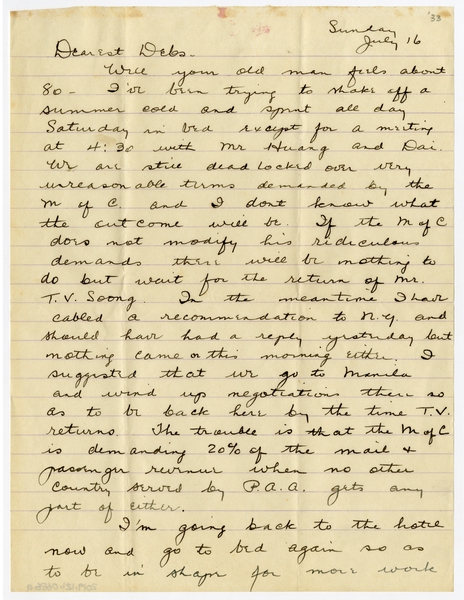 '33
Sunday
July 16
Dearest Debs -
Well your old man feels about
80 - I've been trying to shake off a
summer cold and spent all day
Saturday in bed except for a meeting
at 4:30 with Mr Huang and Dai.
We are still deadlocked over very
unreasonable terms demanded by the
M of C. and I dont know what
the outcome will be. If the M of C
does not modify his ridiculous
demands there will be nothing to
do but wait for the return of Mr.
T.V. Soong. In the meantime I have
cabled a recommendation to N.Y. and
should have had a reply yesterday but
nothing came or this morning either. I
suggested that we go to Manila
and wind up negotiations there so
as to be back here by the time T.V.
returns. The trouble is that the M of C
is demanding 20% of the mail +
passenger revenue when no other
country served by P.A.A. gets any
part of either.
I'm going back to the hotel
now and go to bed again so as
to be in shape for more work